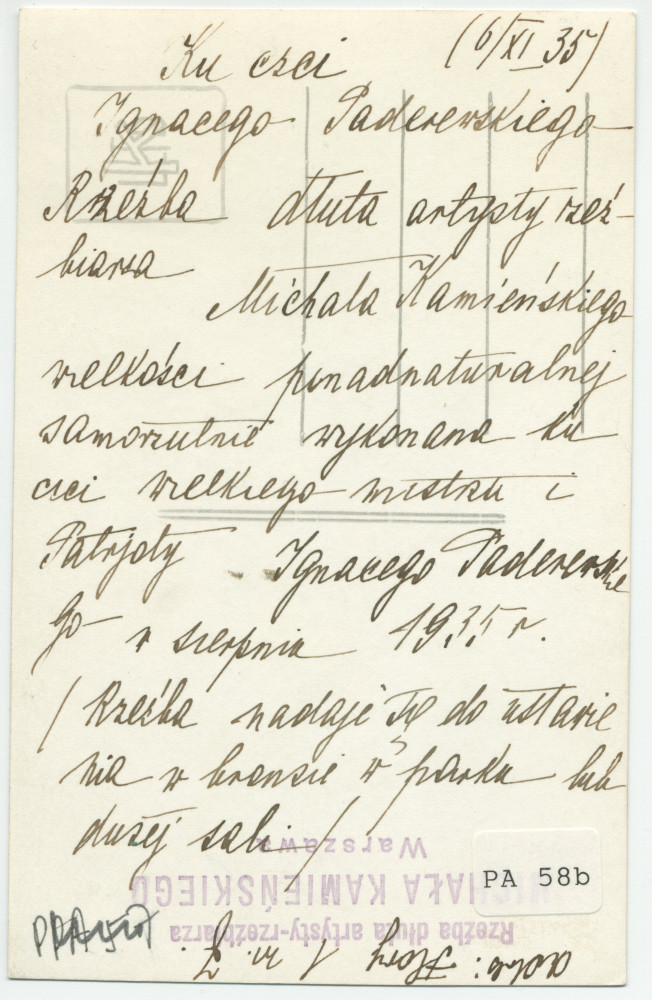 (6/XI 35)
Ku czci
Ignacego Paderewskiego
Rzeźba dłuta artysty rzeź-
biarza
Michała Kamieńskiego
wielkości ponadnaturalnej
samorzutnie wykonana ku
czci wielkiego mistrza i
Patrjoty Ignacego Paderewskie
go w sierpniu 1935 r.
/ Rzeźba nadaje się do ustawie
nia w bronzie w parku lub
dużej sali /
Warszawa
MICHAŁA KAMIEŃSKIEGO
Rzeźba dłuta artysty-rzeźbiarza
PA 58b